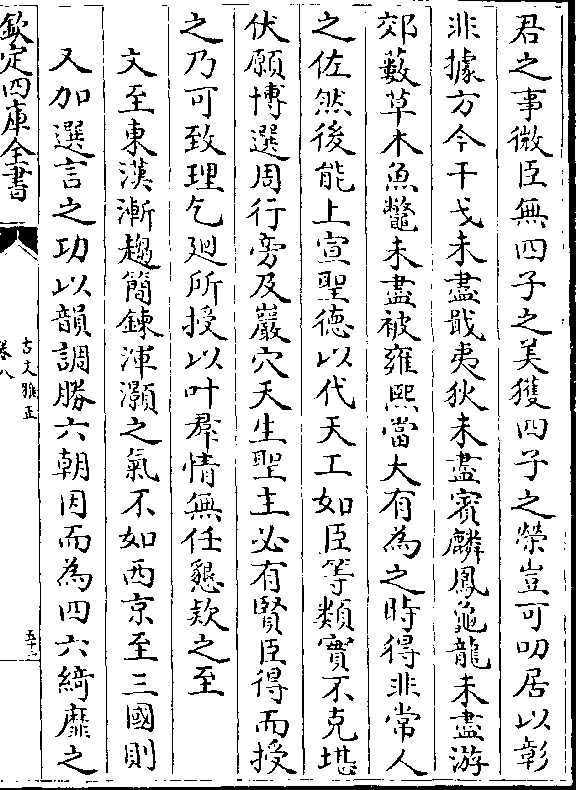 君之事微臣無四子之美獲四子之榮豈可叨居以彰
非據方今干戈未盡戢夷狄未盡賓麟鳳龜龍未盡游
郊藪草木魚鼈未盡被雍熙當大有為之時得非常人
之佐然後能上宣聖德以代天工如臣等類實不克堪
伏願博選周行旁及巖穴天生聖主必有賢臣得而授
之乃可致理乞廻所授以叶羣情無任懇欵之至
文至東漢漸趨簡鍊渾灝之氣不如西京至三國則
又加選言之功以韻調勝六朝因而為四六綺靡之
欽定四庫全書
古文雅正
卷八
五十二